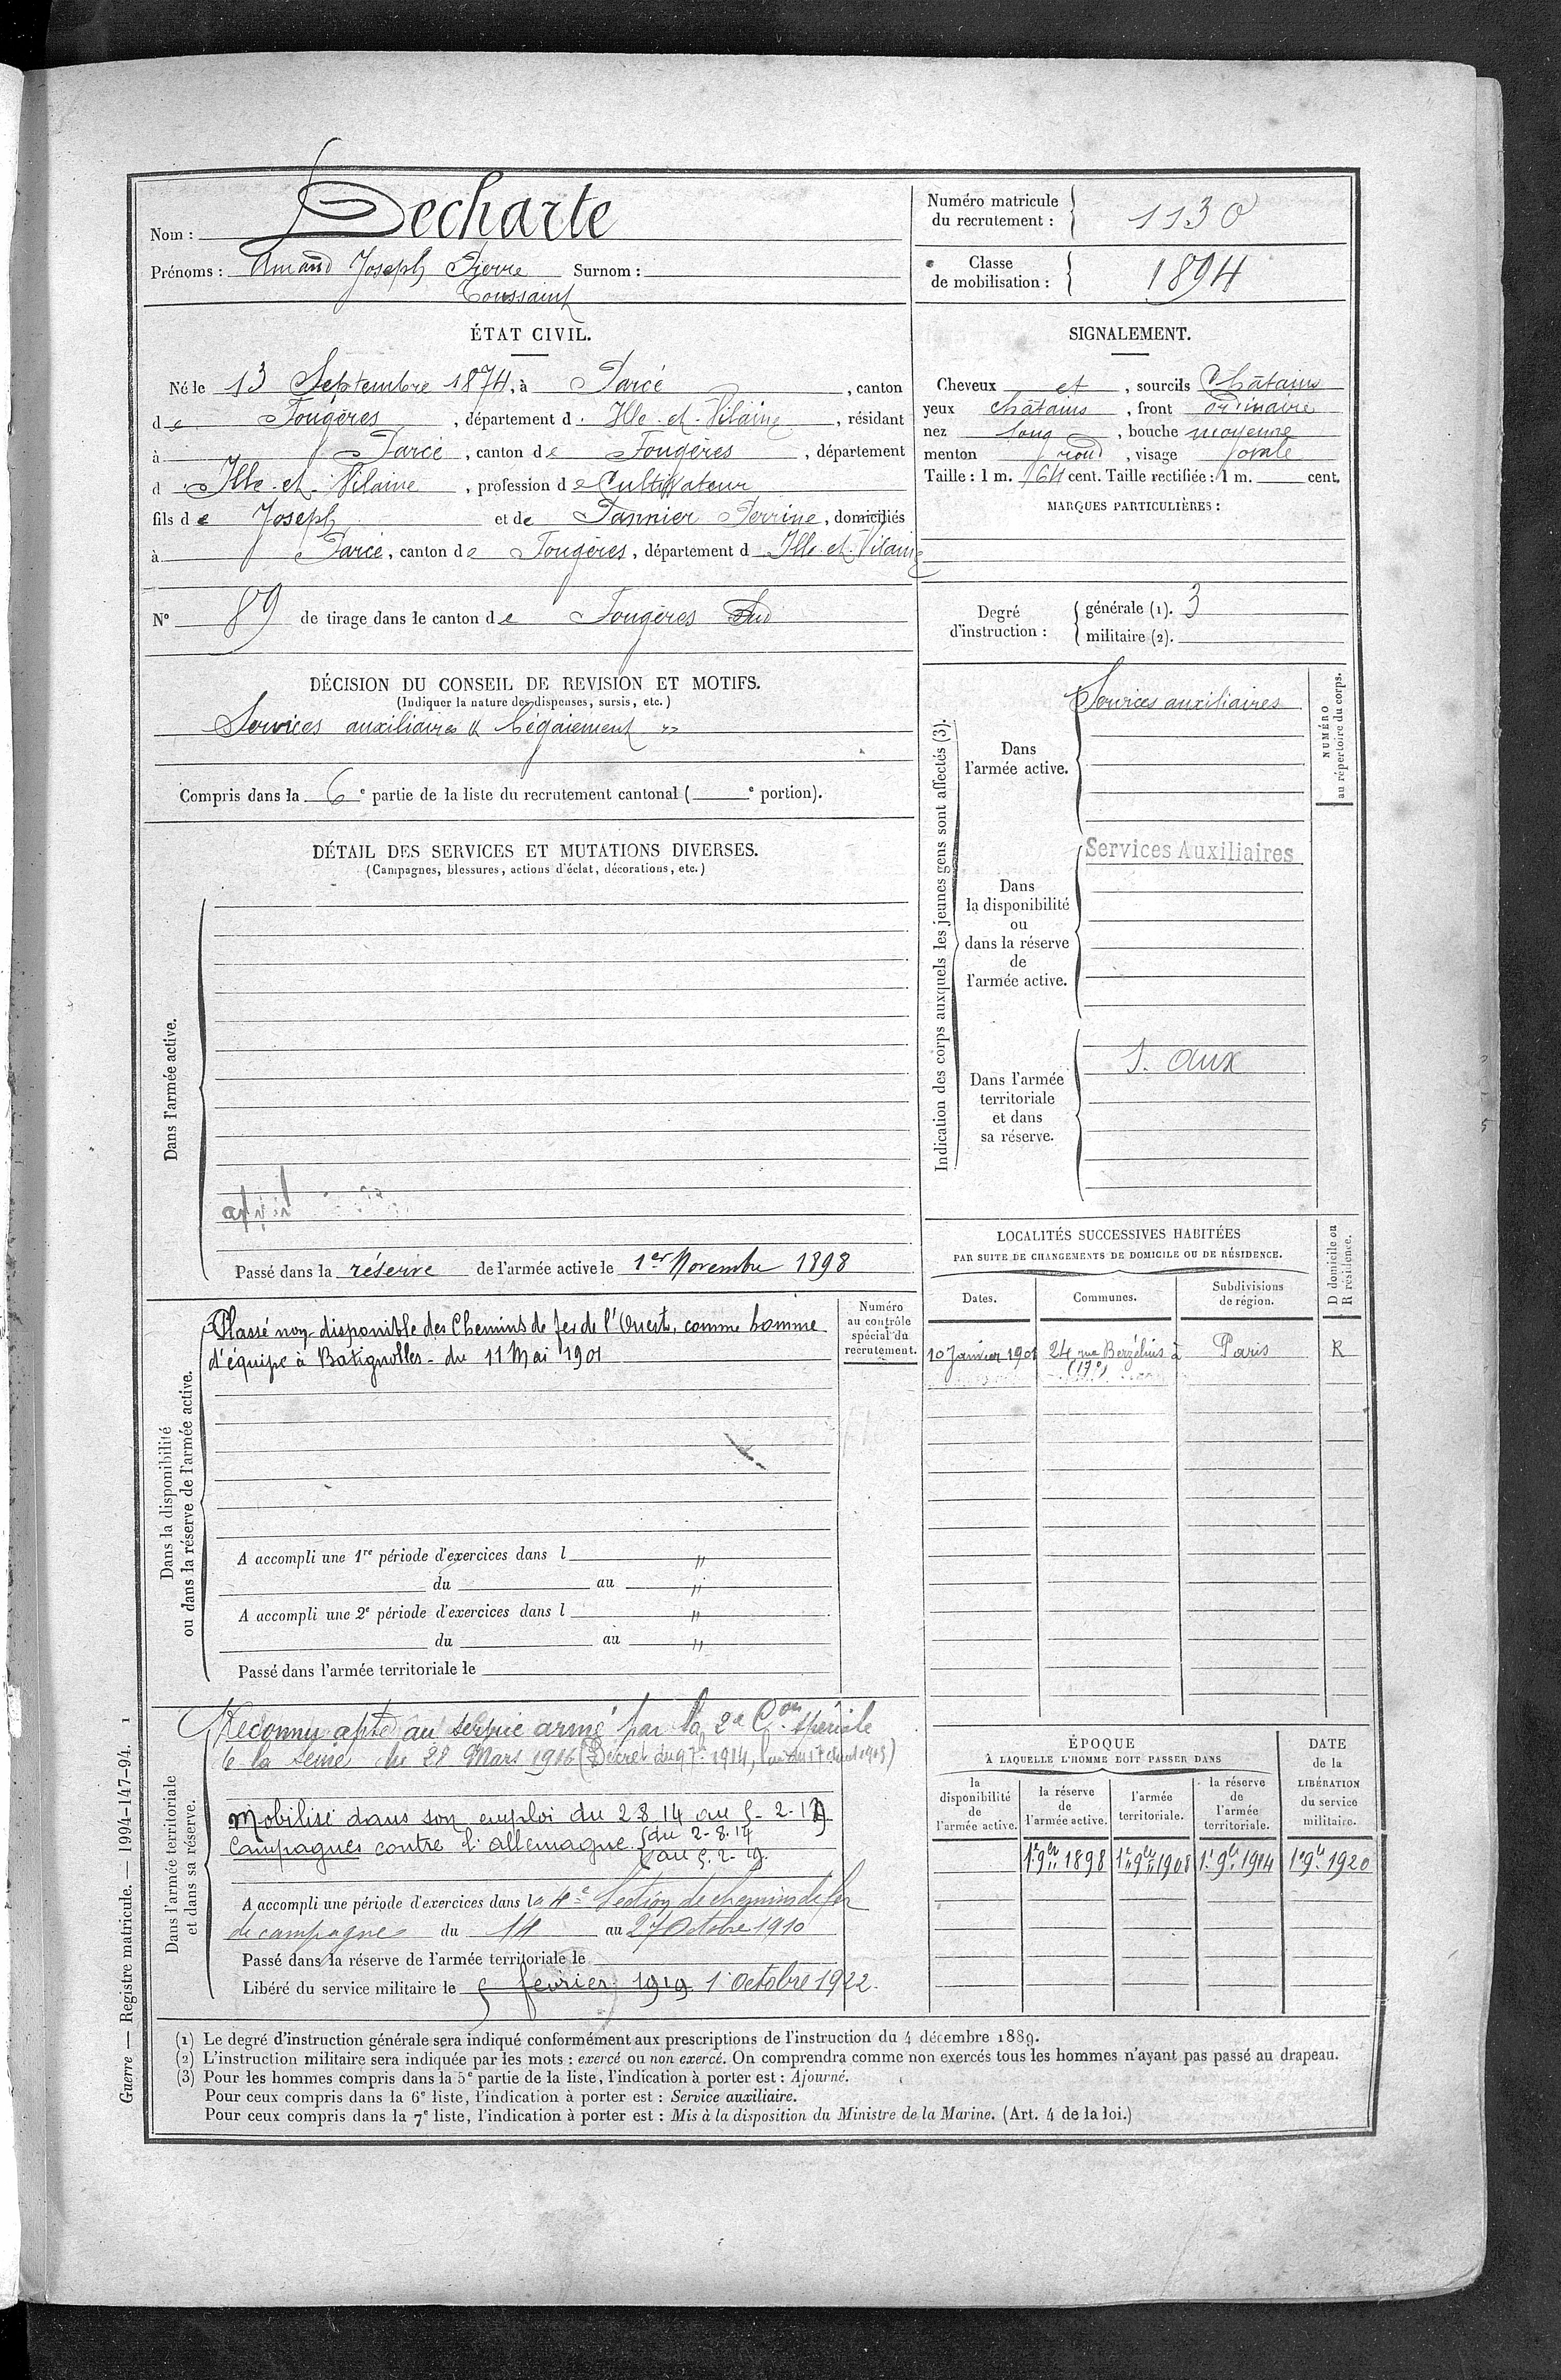 Nom : Decharte
Prénoms : Amand Joseph Pierre Surnom :
Toussaint
Numéro matricule
du recrutement : 1130
Classe
de mobilisation : 1894
ÉTAT CIVIL.
Né le 13 Septembre 1874, à Parcé, canton
de Fougères, département d. Ille-et-Vilaine, résidant
à Parcé, canton de Fougères, département
d. Ille-et-Vilaine, profession de Cultivateur
fils de Joseph et de Pannier Perrine, domiciliés
à Parcé, canton de Fougères, département d Ille-et-Vilaine
N° 89 de tirage dans le canton de Fougères Sud
SIGNALEMENT.
Cheveux et, sourcils Châtains
yeux châtains, front ordinaire
nez long, bouche moyenne
menton rond, visage ovale
Taille : 1 m. 64 cent. Taille rectifiée : 1 m. cent.
MARQUES PARTICULIÈRES :
Degré
d'instruction :
générale (1). 3
militaire (2).
DÉCISION DU CONSEIL DE REVISION ET MOTIFS.
(Indiquer la nature des dispenses, sursis, etc.)
Services auxiliaires « bégaiement »
Compris dans la 6e partie de la liste du recrutement cantonal ( e portion).
DÉTAIL DES SERVICES ET MUTATIONS DIVERSES.
(Campagnes, blessures, actions d'éclat, décorations, etc.)
Dans l'armée active.
Passé dans la réserve de l'armée active le 1er Novembre 1898
Indication des corps auxquels les jeunes gens sont affectés (3).
Dans
l'armée active.
Services auxiliaires
NUMÉRO
au répertoire du corps.
Dans
la disponibilité
ou
dans la réserve
de
l'armée active.
Services Auxiliaires
Dans l'armée
territoriale
et dans
sa réserve.
S. aux
Dans la disponibilité
ou dans la réserve de l'armée active.
Numéro
au contrôle
spécial du
recrutement.
Classé non-disponible des Chemins de fer de l'Ouest, comme homme
d'équipe à Batignolles - du 11 Mai 1901
A accompli une 1re période d'exercices dans l "
du au "
A accompli une 2e période d'exercices dans l "
du au "
Passé dans l'armée territoriale le
LOCALITÉS SUCCESSIVES HABITÉES
PAR SUITE DE CHANGEMENTS DE DOMICILE OU DE RÉSIDENCE.
D domicile ou
R résidence.
Dates. Communes. Subdivisions
de région.
10 Janvier 1901 24 rue Berzélius à Paris R
(17e)
Dans l'armée territoriale
et dans sa réserve.
Reconnu apte au service armé par la 2e Con spéciale
de la Seine du 28 Mars 1916 (Décret du 9 7bre 1914, loi du 17 Août 1915)
Mobilisé dans son emploi du 2.8.14 au 5-2-19
Campagnes contre l'allemagne du 2-8-14
au 5-2-19.
A accompli une période d'exercices dans la 4e Section de chemins de fer
de campagne du 14 au 27 Octobre 1910
Passé dans la réserve de l'armée territoriale le
Libéré du service militaire le 5 février 1919 1er Octobre 1922.
ÉPOQUE
À LAQUELLE L'HOMME DOIT PASSER DANS
DATE
de la
LIBÉRATION
du service
militaire.
la
disponibilité
de
l'armée active.
la réserve
de
l'armée active.
l'armée
territoriale.
la réserve
de
l'armée
territoriale.
1er 9bre 1898 1er 9bre 1908 1er 9bre 1914 1er 9bre 1920
(1) Le degré d'instruction générale sera indiqué conformément aux prescriptions de l'instruction du 4 décembre 1889.
(2) L'instruction militaire sera indiquée par les mots : exercé ou non exercé. On comprendra comme non exercés tous les hommes n'ayant pas passé au drapeau.
(3) Pour les hommes compris dans la 5e partie de la liste, l'indication à porter est : Ajourné.
Pour ceux compris dans la 6e liste, l'indication à porter est : Service auxiliaire.
Pour ceux compris dans la 7e liste, l'indication à porter est : Mis à la disposition du Ministre de la Marine. (Art. 4 de la loi.)
Guerre — Registre matricule. — 1994-147-94. 1